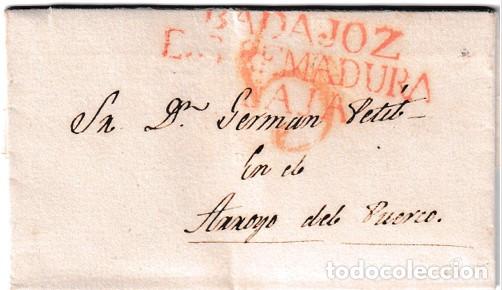 BADAJOZ
EXTREMADURA
BAJA
Sr. Dn. German Petit
En el
Arroyo del Puerco.
todocoleccion.net